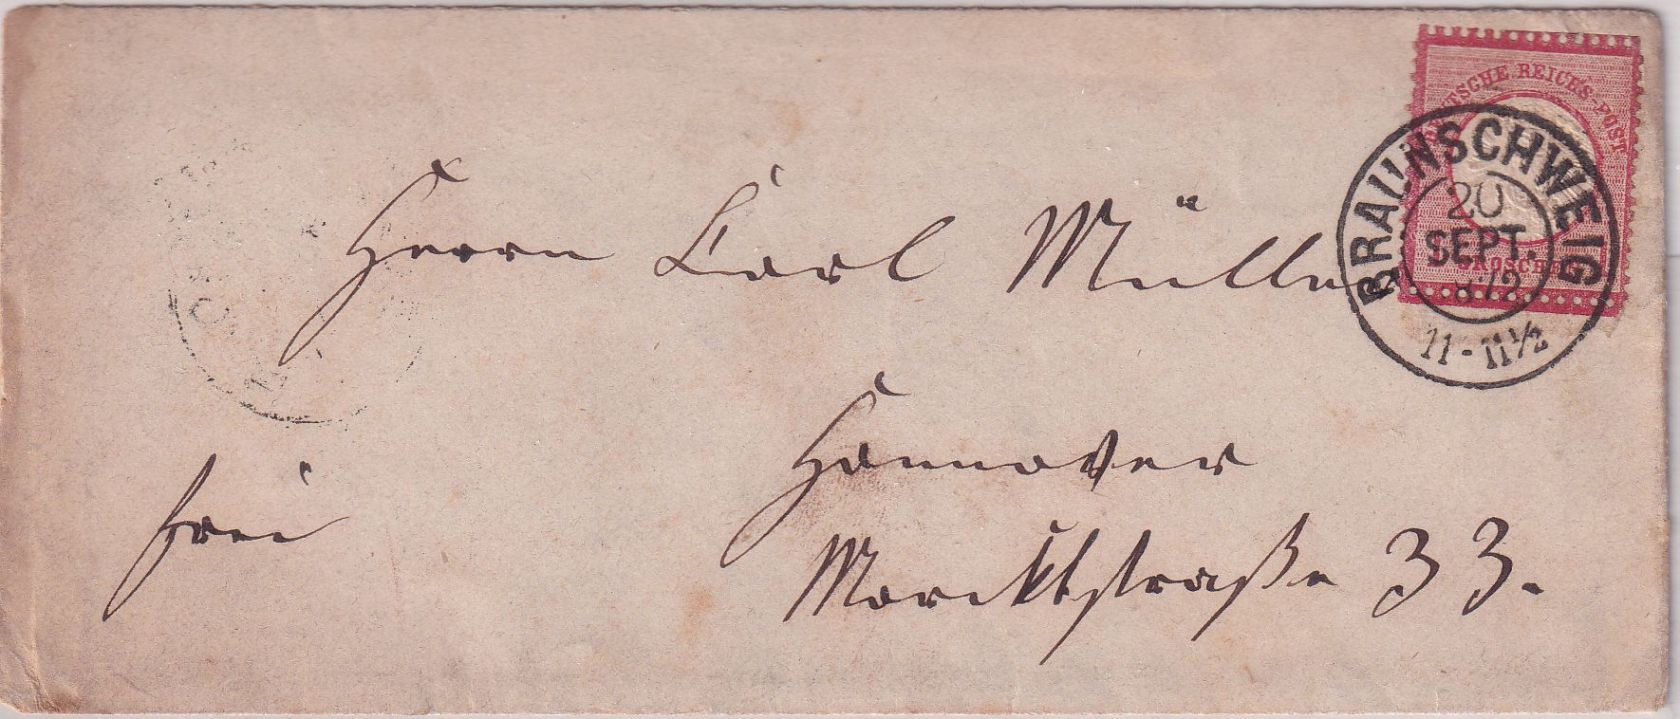 DEUTSCHE REICHS-POST
GROSCHEN
BRAUNSCHWEIG
20
SEPT.
1872
11-11½
Herrn Carl Müller
Hannover
frei
Marcktstraße 33.